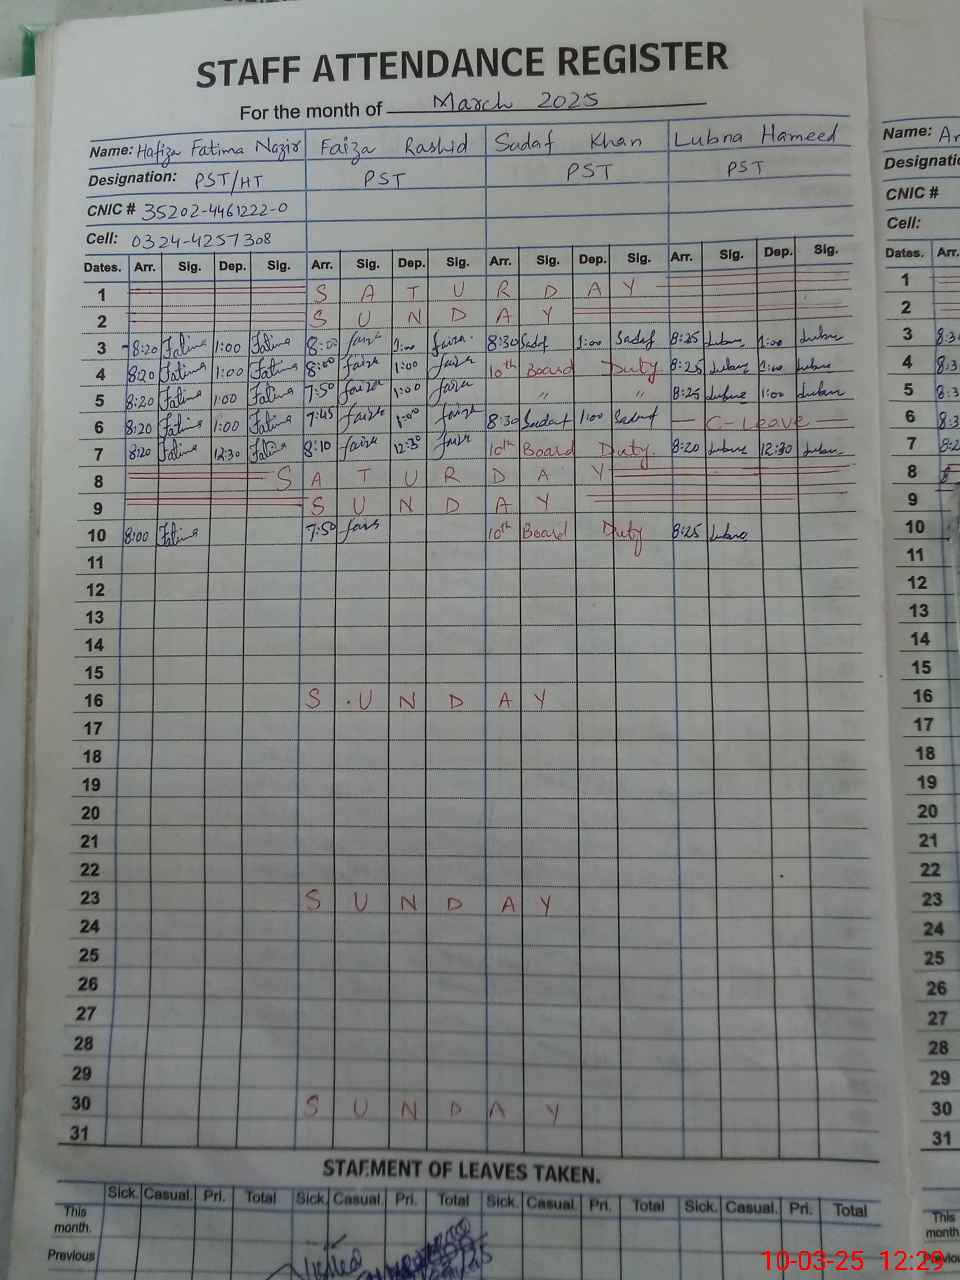 STAFF ATTENDANCE REGISTER
For the month of March 2025
Name: Hafiza Fatima Nazir Faiza Rashid Sadaf Khan Lubna Hameed
Designation: PST/HT PST PST PST
CNIC # 35202-4461222-0
Cell: 0324-4257308
Dates. Arr. Sig. Dep. Sig. Arr. Sig. Dep. Sig. Arr. Sig. Dep. Sig. Arr. Sig. Dep. Sig.
1 SATURDAY
2 SUNDAY
3 8:20 Fatima 1:00 Fatima 8:00 faiza 1:00 faiza 8:30 Sadaf 1:00 Sadaf 8:25 Lubna 1:00 Lubna
4 8:20 Fatima 1:00 Fatima 8:00 faiza 1:00 faiza 10th Board Duty 8:25 Lubna 1:00 Lubna
5 8:20 Fatima 1:00 Fatima 7:50 faiza 1:00 faiza " " 8:25 Lubna 1:00 Lubna
6 8:20 Fatima 1:00 Fatima 7:45 faiza 1:00 faiza 8:30 Sadaf 1:00 Sadaf — C-Leave —
7 8:20 Fatima 12:30 Fatima 8:10 faiza 12:30 faiza 10th Board Duty. 8:20 Lubna 12:30 Lubna
8 SATURDAY
9 SUNDAY
10 8:00 Fatima 7:50 faiza 10th Board Duty 8:25 Lubna
11
12
13
14
15
16 SUNDAY
17
18
19
20
21
22
23 SUNDAY
24
25
26
27
28
29
30 SUNDAY
31
STAFMENT OF LEAVES TAKEN.
Sick. Casual. Pri. Total Sick. Casual. Pri. Total Sick. Casual. Pri. Total Sick. Casual. Pri. Total
This
month.
Previous
Visited
Name:
Designation
CNIC #
Cell:
Dates. Arr.
1
2
3
4
5
6
7
8
9
10
11
12
13
14
15
16
17
18
19
20
21
22
23
24
25
26
27
28
29
30
31
This
month
Previous
10-03-25 12:29